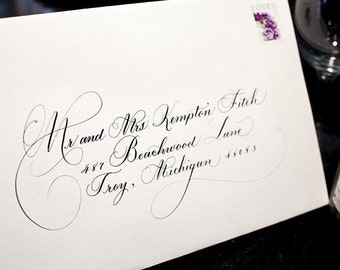 LOVE
Mr and Mrs Kempton Fitch
487 Beachwood Lane
Troy, Michigan 48083